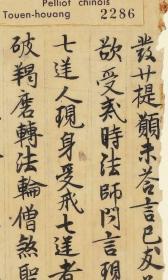 Pelliot chinois
Touen-houang 2286
發提願未答言已
欲受戒時法師問言現
七逆人現身受戒七逆者
破羯磨轉法輪僧煞聖